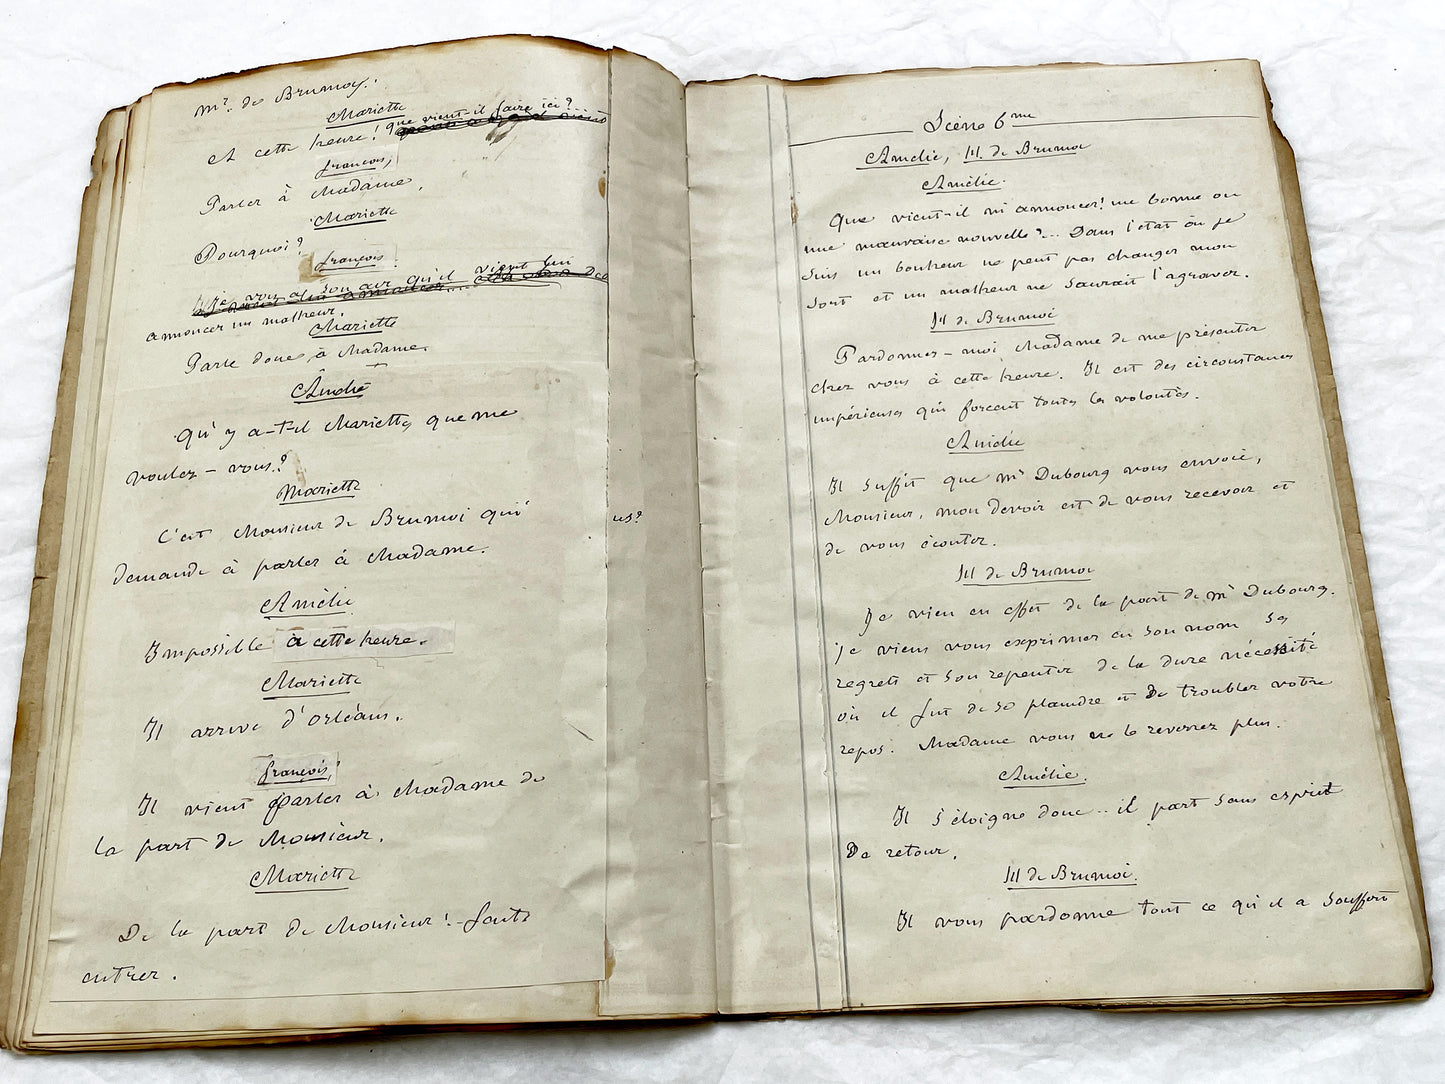 Mr. de Brumoy.
Mariette
A cette heure! que vient-il faire ici?
François,
Parler à Madame.
Mariette
Pourquoi?
François.
je vois à son air qu'il vient lui
annoncer un malheur.
Mariette
Parle donc à Madame.
Amélie
Qu'y a-t-il Mariette, que me
voulez-vous?
Mariette
C'est Monsieur de Brumoi qui
demande à parler à Madame.
Amélie
Impossible à cette heure.
Mariette
Il arrive d'Orléans.
François,
Il vient parler à Madame de
la part de Monsieur.
Mariette
De la part de Monsieur!-faites
entrer.
us?
Scène 6me
Amélie, M. de Brumoi
Amélie.
Que vient-il m'annoncer! une bonne ou
une mauvaise nouvelle?... Dans l'état où je
suis un bonheur ne peut pas changer mon
sort et un malheur ne saurait l'agraver.
M de Brumoi
Pardonnez-moi Madame de me présenter
chez vous à cette heure. Il est des circonstances
impérieuses qui forcent toutes les volontés.
Amélie
Il suffit que Mr Dubourg vous envoie,
Monsieur, mon devoir est de vous recevoir et
de vous écouter.
M de Brumoi
Je viens en effet de la part de Mr Dubourg.
je viens vous exprimer en son nom ses
regrets et son repentir de la dure nécessité
où il fut de se plaindre et de troubler votre
repos. Madame vous ne le reverrez plus.
Amélie.
Il s'éloigne donc.. il part sans esprit
De retour.
M de Brumoi.
Il vous pardonne tout ce qu'il a souffert